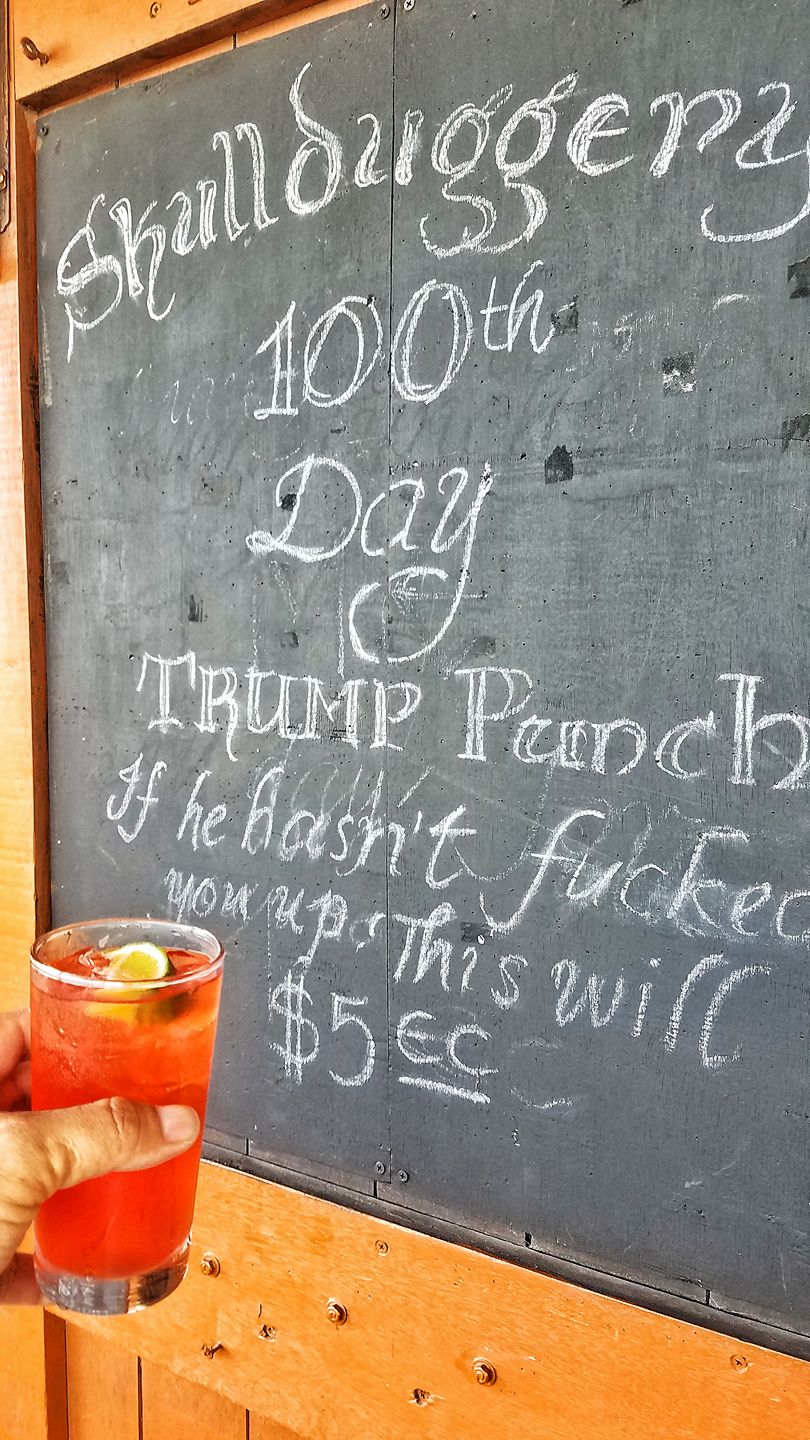 Skullduggery
100th
Day
TRUMP Punch
If he hasn't fucked
you up this will
$5 EC